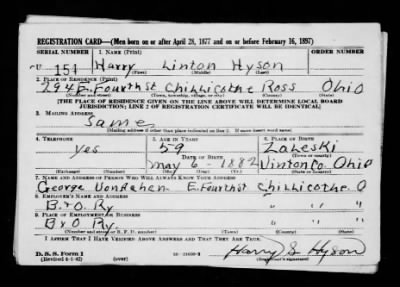 REGISTRATION CARD—(Men born on or after April 28, 1877 and on or before February 16, 1897)
SERIAL NUMBER 1. NAME (Print) ORDER NUMBER
U 151 Harry Linton Hyson
(First) (Middle) (Last)
2. PLACE OF RESIDENCE (Print)
294 E. Fourth st Chillicothe Ross Ohio
(Number and street) (Town, township, village, or city) (County) (State)
[THE PLACE OF RESIDENCE GIVEN ON THE LINE ABOVE WILL DETERMINE LOCAL BOARD
JURISDICTION; LINE 2 OF REGISTRATION CERTIFICATE WILL BE IDENTICAL]
3. MAILING ADDRESS
Same
[Mailing address if other than place indicated on line 2. If same insert word same]
4. TELEPHONE 5. AGE IN YEARS 6. PLACE OF BIRTH
yes 59 Zaleski
DATE OF BIRTH
may 6 - 1882 Vinton Co. Ohio
7. NAME AND ADDRESS OF PERSON WHO WILL ALWAYS KNOW YOUR ADDRESS
George E. Fourth st Chillicothe O
8. EMPLOYER'S NAME AND ADDRESS
B & O. Ry. " " "
9. PLACE OF EMPLOYMENT OR BUSINESS
B & O Ry " " "
(Number and street or R. F. D. number) (Town) (County) (State)
I AFFIRM THAT I HAVE VERIFIED ABOVE ANSWERS AND THAT THEY ARE TRUE.
D. S. S. Form 1
(Revised 4-1-42) Harry L Hyson